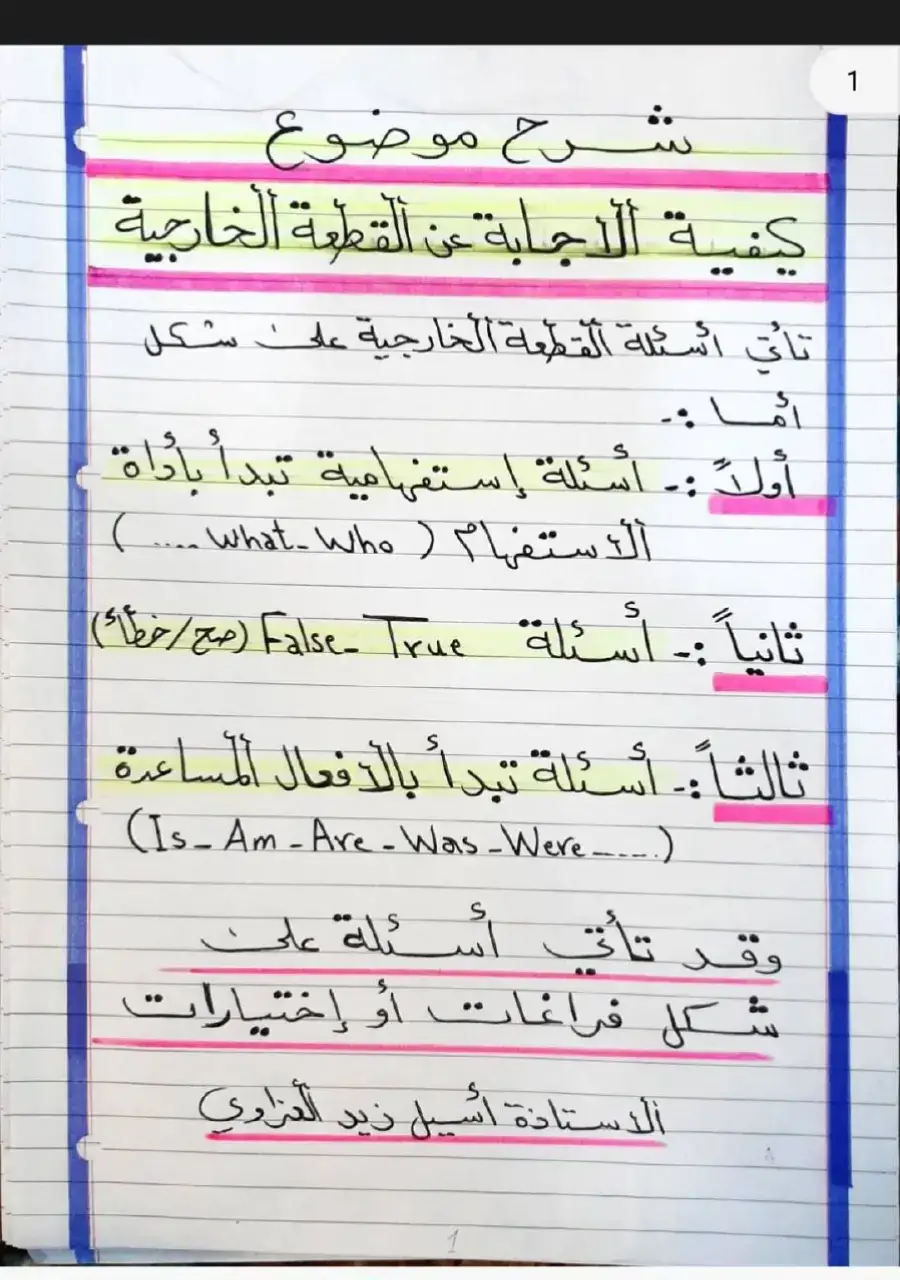 1
شرح موضوع
كيفية الاجابة عن القطعة الخارجية
تأتي أسئلة القطعة الخارجية على شكل
أما :-
أولاً :- أسئلة إستفهامية تبدأ بأداة
الاستفهام ( What - Who .... )
ثانياً :- أسئلة False - True (صح/خطأ)
ثالثاً :- أسئلة تبدأ بالأفعال المساعدة
(Is - Am - Are - Was - Were ......)
وقد تأتي أسئلة على
شكل فراغات أو إختيارات
الاستاذة أسيل زيد العزاوي
1